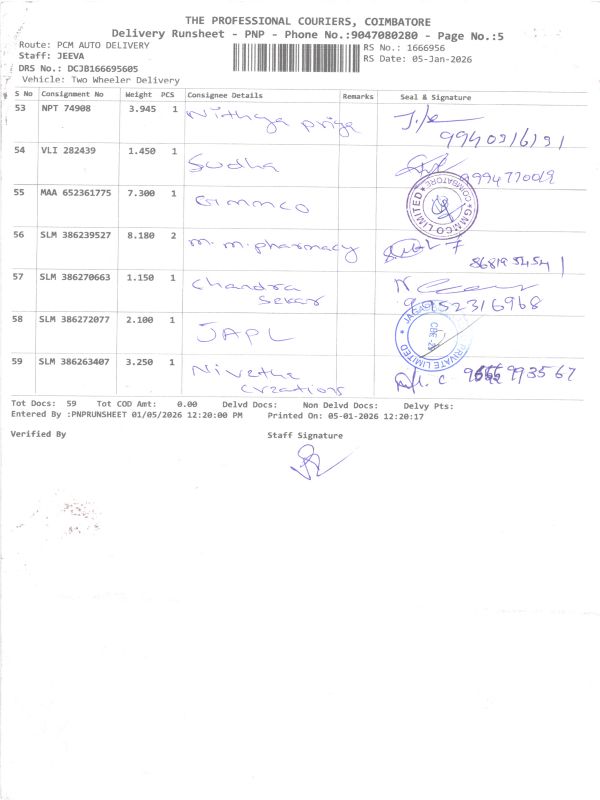 THE PROFESSIONAL COURIERS, COIMBATORE
Delivery Runsheet - PNP - Phone No.:9047080280 - Page No.:5
Route: PCM AUTO DELIVERY
RS No.: 1666956
Staff: JEEVA
RS Date: 05-Jan-2026
DRS No.: DCJB166695605
Vehicle: Two Wheeler Delivery
S No Consignment No Weight PCS Consignee Details Remarks Seal & Signature
53 NPT 74908 3.945 1 Nithya priya
54 VLI 282439 1.450 1 Sudha
9994770019
55 MAA 652361775 7.300 1 Gimmco
GMMCO LIMITED COIMBATORE
56 SLM 386239527 8.180 2 m.m.pharmacy
57 SLM 386270663 1.150 1 Chandra
Sekar
9952316968
58 SLM 386272077 2.100 1 JAPL
PRIVATE LIMITED
59 SLM 386263407 3.250 1 Nivetha
creations
Tot Docs: 59 Tot COD Amt: 0.00 Delvd Docs: Non Delvd Docs: Delvy Pts:
Entered By :PNPRUNSHEET 01/05/2026 12:20:00 PM Printed On: 05-01-2026 12:20:17
Verified By
Staff Signature